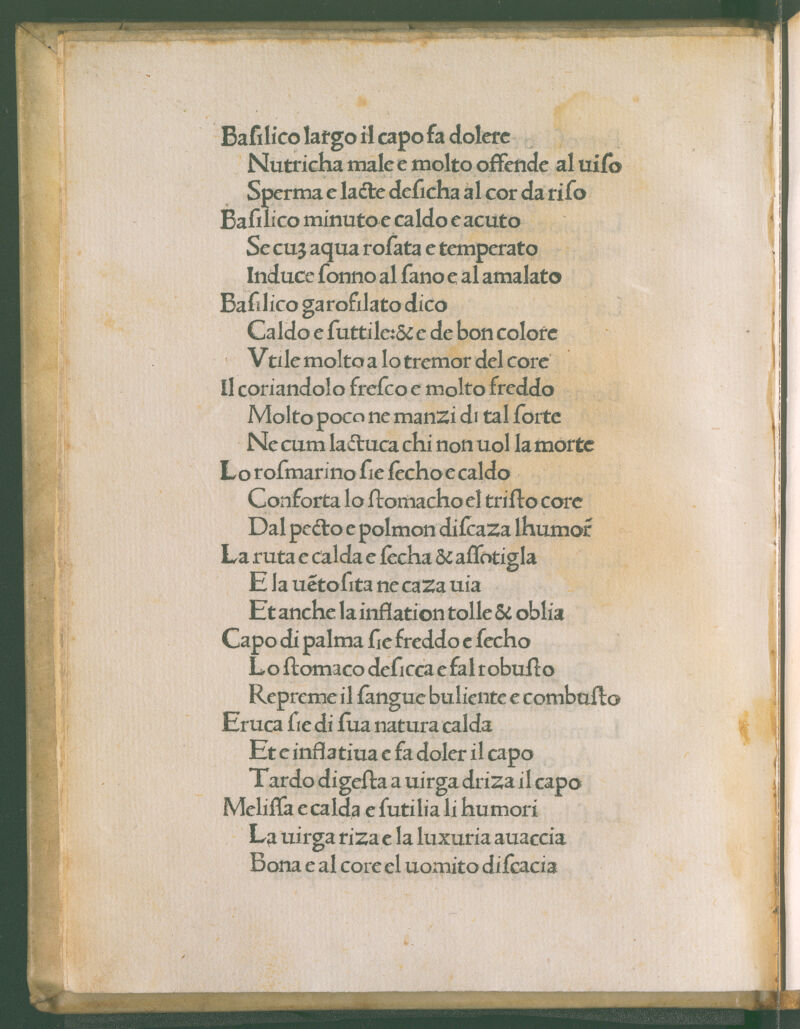 Baſilico largo il capo fa dolere
Nutricha male e molto offende al uiſo
Sperma e lacte deſicha al cor da riſo
Baſilico minuto e caldo e acuto
Se cuʒ aqua roſata e temperato
Induce ſonno al ſano e al amalato
Baſilico garofilato dico
Caldo e ſuttile:& e de bon colore
Vtile molto a lo tremor del core
Il coriandolo freſco e molto freddo
Molto poco ne manzi di tal ſorte
Ne cum lactuca chi non uol la morte
Lo roſmarino ſie ſecho e caldo
Conforta lo ſtomacho el triſto core
Dal pecto e polmon diſcaza lhumor̄
La ruta e calda e ſecha & aſſotigla
E la uētoſita ne caza uia
Et anche la inflation tolle & oblia
Capo di palma ſie freddo e ſecho
Lo ſtomaco deſicca e fal robuſto
Repreme il ſangue buliente e combuſto
Eruca ſie di ſua natura calda
Et e inflatiua e fa doler il capo
Tardo digeſta a uirga driza il capo
Meliſſa e calda e ſutilia li humori
La uirga riza e la luxuria auaccia
Bona e al core el uomito diſcacia